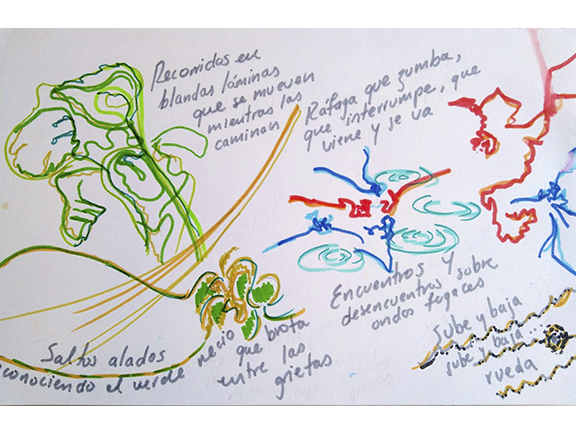 Recorridos en
blandas láminas
que se mueven
mientras las
caminan
Ráfaga que zumba,
que interrumpe, que
viene y se va
Encuentros y
desencuentros sobre
ondas fugaces
Saltos alados
conociendo el verde
necio
que brota
entre las
grietas
Sube y baja
sube y baja...
rueda